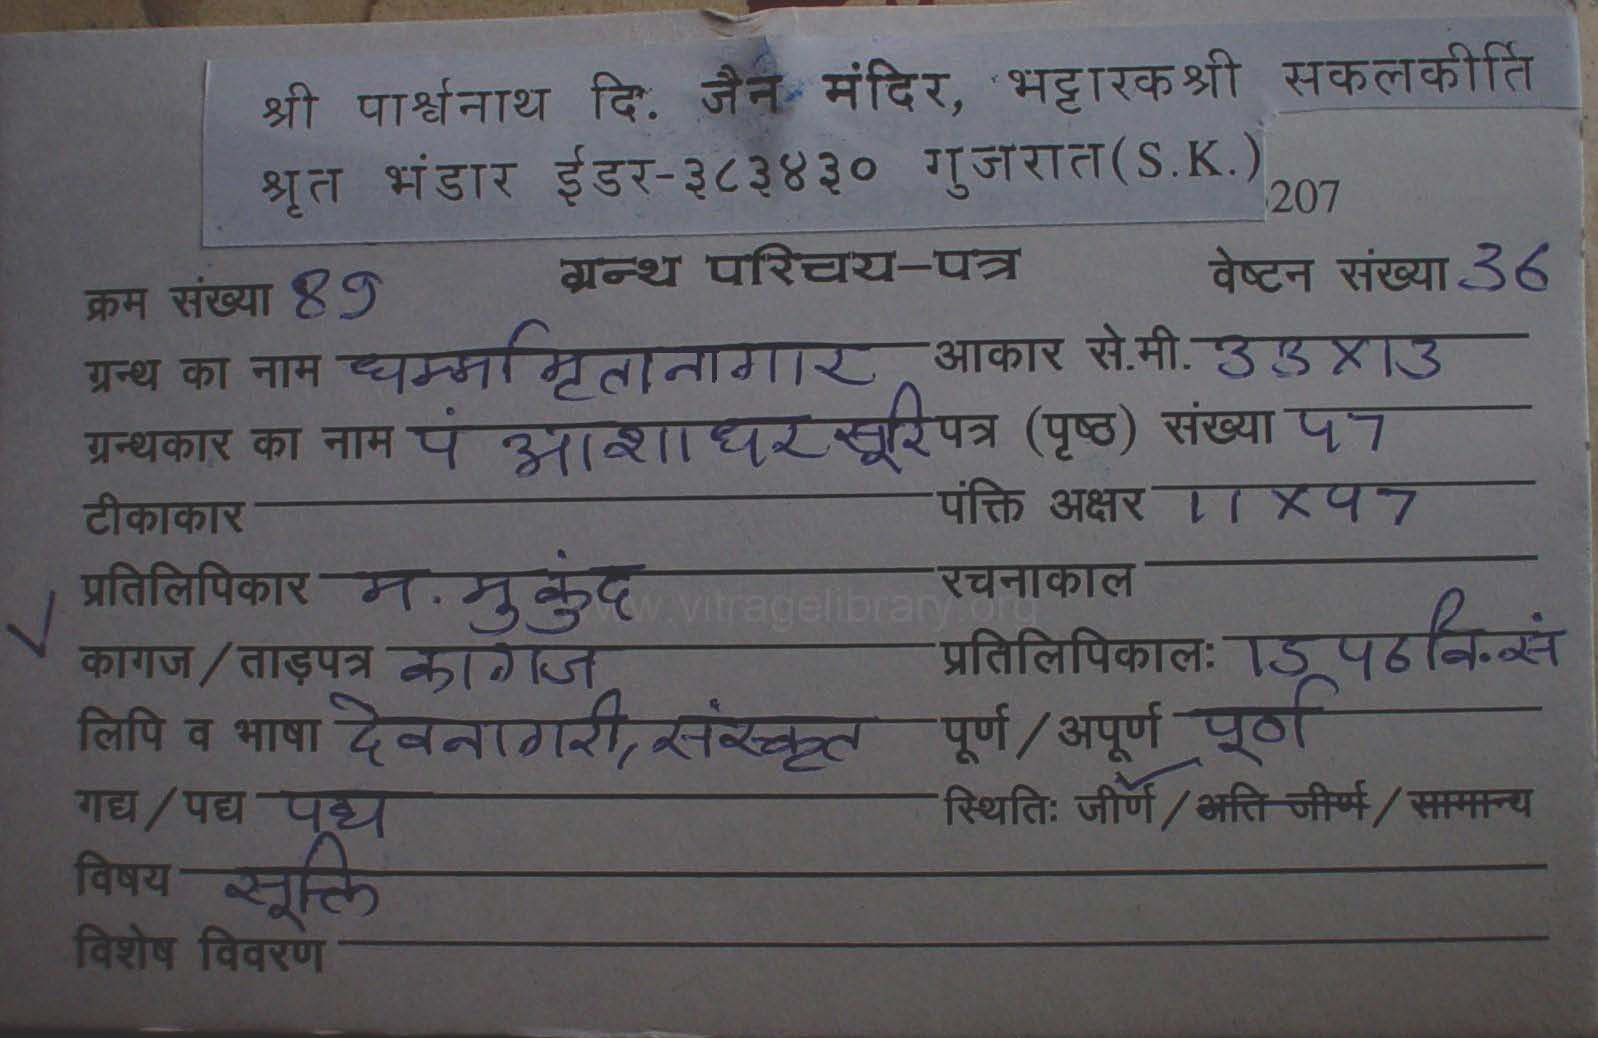 श्री पार्श्वनाथ दि. जैन मंदिर, भट्टारकश्री सकलकीर्ति
श्रृत भंडार ईडर-३८३४३० गुजरात(S.K.)
207
ग्रन्थ परिचय-पत्र
क्रम संख्या 89 वेष्टन संख्या 36
ग्रन्थ का नाम धर्म्मामृतानागार आकार से.मी. 33 x 13
ग्रन्थकार का नाम पं आशाधर सूरि पत्र (पृष्ठ) संख्या 47
टीकाकार पंक्ति अक्षर 11 x 47
प्रतिलिपिकार म. मुकुंद रचनाकाल
www.vitragelibrary.org
कागज/ताड़पत्र कागज प्रतिलिपिकालः वि.सं
लिपि व भाषा देवनागरी, संस्कृत पूर्ण/अपूर्ण पूर्ण
गद्य/पद्य पद्य स्थितिः जीर्ण/अति जीर्ण/सामान्य
विषय सूक्ति
विशेष विवरण